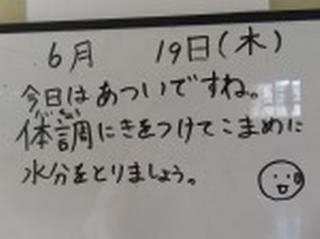 6月　19日(木)
今日はあついですね。
体調にきをつけてこまめに
水分をとりましょう。